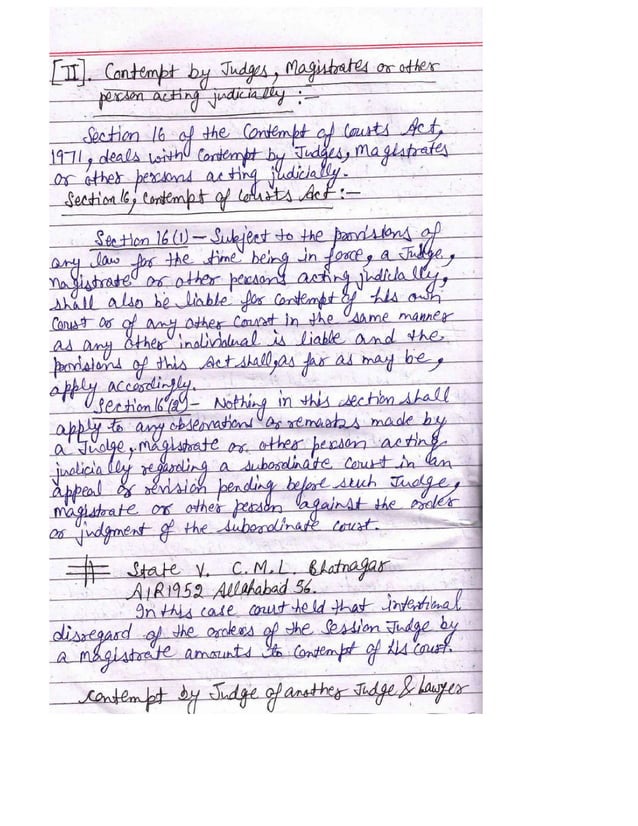 [II]. Contempt by Judges, Magistrates or other
person acting judicially :-
Section 16 of the Contempt of Courts Act,
1971, deals with Contempt by Judges, Magistrates
or other persons acting judicially.
Section 16, Contempt of Courts Act :-
Section 16(1) - Subject to the provisions of
any law for the time being in force, a Judge,
magistrate or other persons acting judicially,
shall also be liable for contempt of his own
Court or of any other Court in the same manner
as any other individual is liable and the
provisions of this Act shall, as far as may be,
apply accordingly.
Section 16(2) - Nothing in this section shall
apply to any observations or remarks made by
a Judge, magistrate or other person acting
judicially regarding a subordinate court in an
appeal or revision pending before such Judge,
magistrate or other person against the order
or judgment of the subordinate court.
# State V. C.M.L. Bhatnagar
AIR 1952 Allahabad 56.
In this case court held that intentional
disregard of the orders of the Session Judge by
a magistrate amounts to contempt of his court.
Contempt by Judge of another Judge & Lawyer